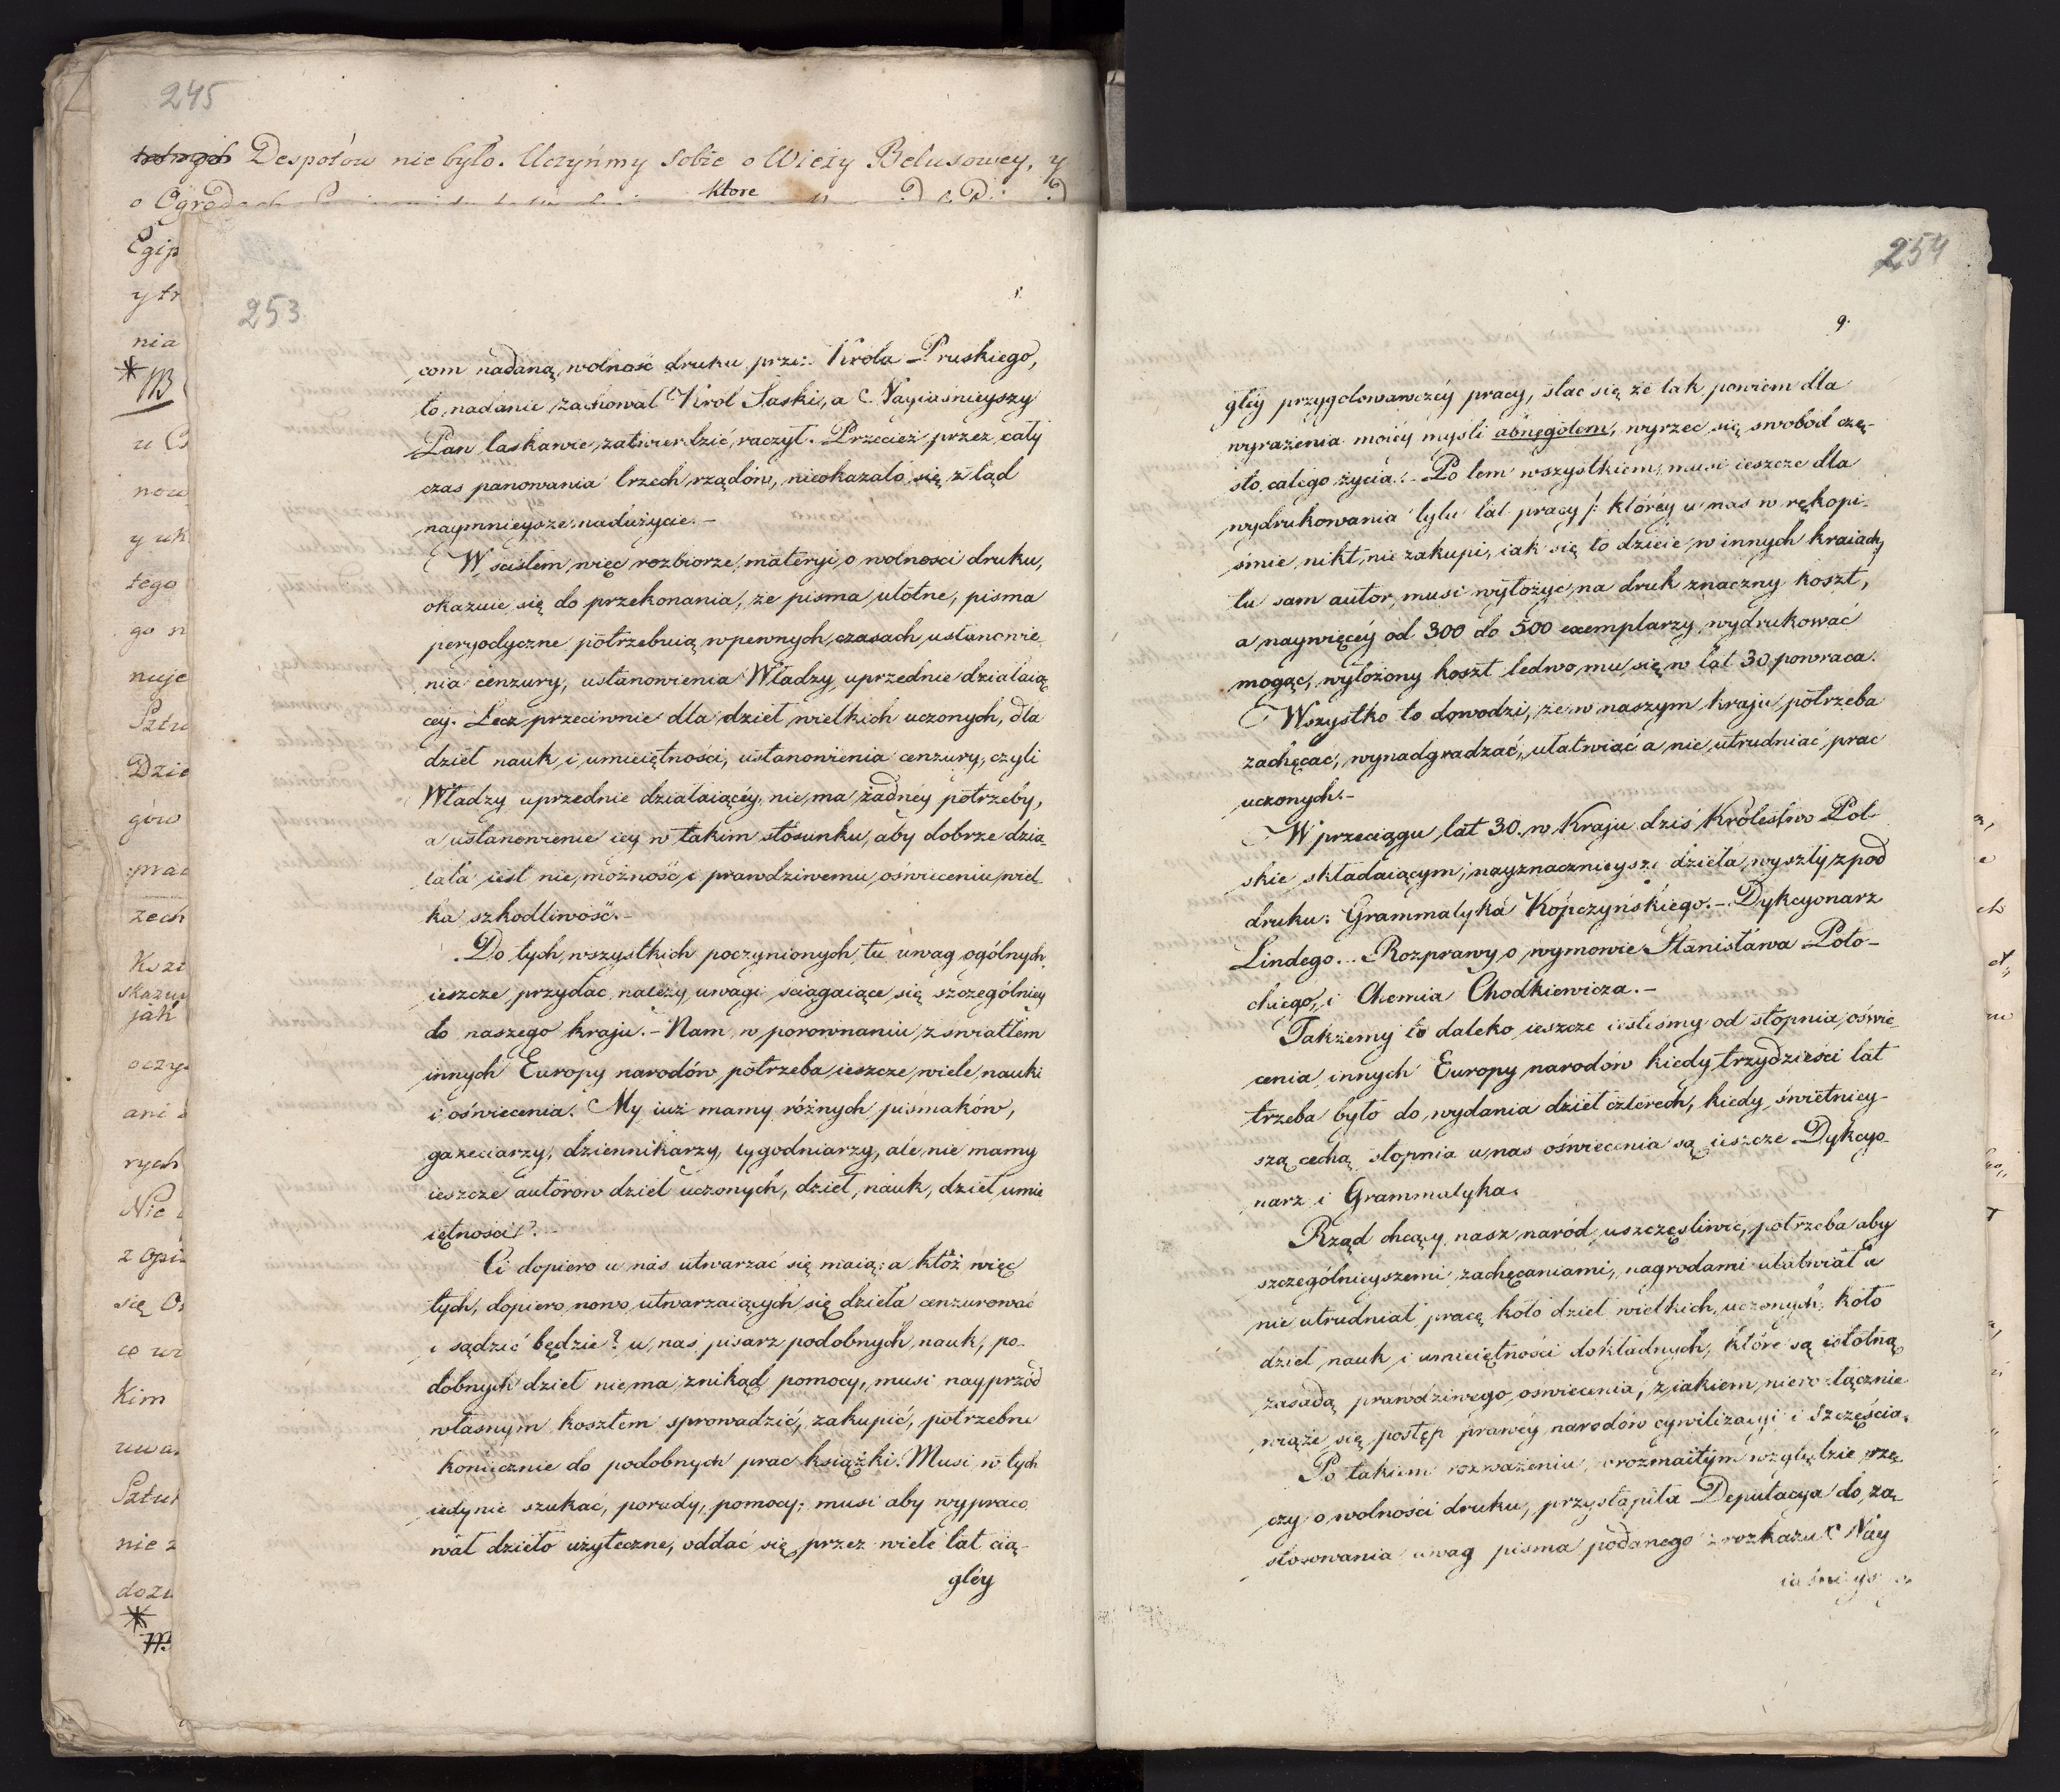 245
Despotów nie było. Uczyńmy sobie o Wieży Belusowey, y
które
o Ogrodach
Egip
y tr
nia
NB
u
now
y uk
tego
go n
nuje
Sztu
Dzie
gów
prac
zech
Kszt
skazu
jak
oczy
ani
rych
Nie
z Opi
się
co wi
kim
uwa
Sztu
nie z
dozu
253
8.
com nadaną wolność druku przez Króla Pruskiego,
to nadanie zachował Krol Saski, a Nayiaśnieyszy
Pan łaskawie zatwierdzić raczył. Przecież przez cały
czas panowania trzech rządów, nieokazało się z tąd
naymnieysze nadużycie.-
W scisłem więc rozbiorze materyi o wolnosci druku,
okazuie się do przekonania, że pisma ulotne, pisma
peryodyczne potrzebuią w pewnych czasach ustanowie-
nia cenzury, ustanowienia Władzy uprzednie działaią
cey. Lecz przeciwnie dla dzieł wielkich uczonych, dla
dzieł nauk i umieiętności, ustanowienia cenzury, czyli
Władzy uprzednie działaiącéy, nie ma żadney potrzeby,
a ustanowienie iey w takim stosunku, aby dobrze dzia-
łała iest nie możność i prawdziwemu oświeceniu wiel-
ka szkodliwość.-
Do tych wszystkich poczynionych tu uwag ogólnych
ieszcze przydać należy uwagi sciągaiące się szczególniey
do naszego kraju.- Nam w porownaniu z światłem
innych Europy narodów potrzeba ieszcze wiele nauki
i oświecenia. My iuż mamy różnych pismaków,
gazeciarzy, dziennikarzy, tygodniarzy, ale nie mamy
ieszcze autorow dzieł uczonych, dzieł nauk, dzieł umie
iętności.
Ci dopiero u nas utwarzać się maią; a któż więc
tych, dopiero nowo utwarzaiących się dzieła cenzurować
i sądzić będzie? u nas pisarz podobnych nauk, po-
dobnych dzieł niema znikąd pomocy, musi nayprzód
własnym kosztem sprowadzić, zakupić, potrzebne
koniecznie do podobnych prac książki. Musi w tych
iedynie szukać, porady, pomocy; musi aby wypraco
wał dzieło użyteczne, oddać się przez wiele lat cią-
gléy
254
9.
gléy przygotowawczéy pracy, stac się że tak powiem dla
wyrażenia moiéy mysli abnegotem, wyrzec się swobód czę-
sto całego życia.- Po tem wszystkiem, musi ieszcze dla
wydrukowania tylu lat pracy /: któréy u nas w rękopi-
śmie nikt nie zakupi, iak się to dzieie w innych kraiach,
tu sam autor musi wyłożyc na druk znaczny koszt,
a naywięcéy od 300 do 500 exemplarzy wydrukować
mogąc, wyłożony koszt ledwo mu się w lat 30 powraca.
Wszystko to dowodzi, że w naszym kraju potrzeba
zachęcać, wynadgradzać, ułatwiać a nie utrudniać prac
uczonych.-
W przeciągu lat 30. w Kraju dziś Królestwo Pol-
skie składaiącym, nayznacznieysze dzieła wyszły z pod
druku: Grammatyka Kopczyńskiego.- Dykcyonarz
Lindego... Rozprawy o wymowie Stanisława Poto-
ckiego, i Chemia Chodkiewicza.-
Takżemy to daleko ieszcze iesteśmy od stopnia oświe-
cenia innych Europy narodów kiedy trzydzieści lat
trzeba było do wydania dzieł czterech, kiedy świetniey-
szą cechą stopnia u nas oświecenia są ieszcze Dykcyo-
narz i Grammatyka.
Rząd chcący nasz naród uszczęsliwic, potrzeba aby
szczególnieyszemi zachęcaniami, nagrodami ułatwiał a
nie utrudniał pracę koło dzieł wielkich, uczonych, koło
dzieł nauk i umieiętności dokładnych, które są istotną
zasadą prawdziwego oświecenia, z iakiem nierozłącznie
wiąże się postęp prawéy narodów cywilizacyi i szczęścia.
Po takiem rozważeniu w rozmaitym względzie rze-
czy o wolności druku, przystąpiła Deputacya do za-
stosowania uwag pisma podanego z rozkazu Nay
iaśnieyszego